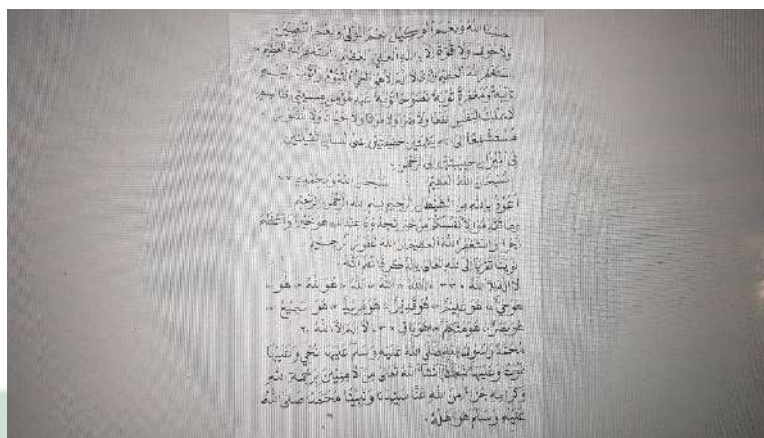 حسبنا الله ونعم الوكيل نعم المولى ونعم النصير
ولا حول ولا قوة إلا بالله العلي العظيم أستغفر الله العظيم
أستغفر الله العظيم الذي لا إله إلا هو الحي القيوم وأتوب إليه
توبة ومغفرة توبة نصوحا توبة عبد
لا يملك لنفسه نفعا ولا ضرا ولا موتا ولا حياة ولا نشورا
كلمتين خفيفتين على اللسان ثقيلتين
في الميزان حبيبتين إلى الرحمن
سبحان الله العظيم سبحان الله وبحمده
أعوذ بالله من الشيطان الرجيم بسم الله الرحمن الرحيم
وما تقدموا لأنفسكم من خير تجدوه عند الله هو خيرا وأعظم
أجرا واستغفروا الله العظيم إن الله غفور رحيم
نويت تقربا إلى الله
لا إله إلا الله ٣٣ الله الله الله هو الله هو
هو حي هو عليم هو قدير هو مريد هو سميع
هو بصير هو متكلم هو باقي ٣ لا إله إلا الله ٢
محمد رسول الله صلى الله عليه وسلم عليها نحيى وعليها
نموت وعليها نبعث إن شاء الله تعالى من الآمنين برحمة الله
وكرامه جزا من الله عنا سيدنا ونبينا محمد صلى الله
عليه وسلم هو هله